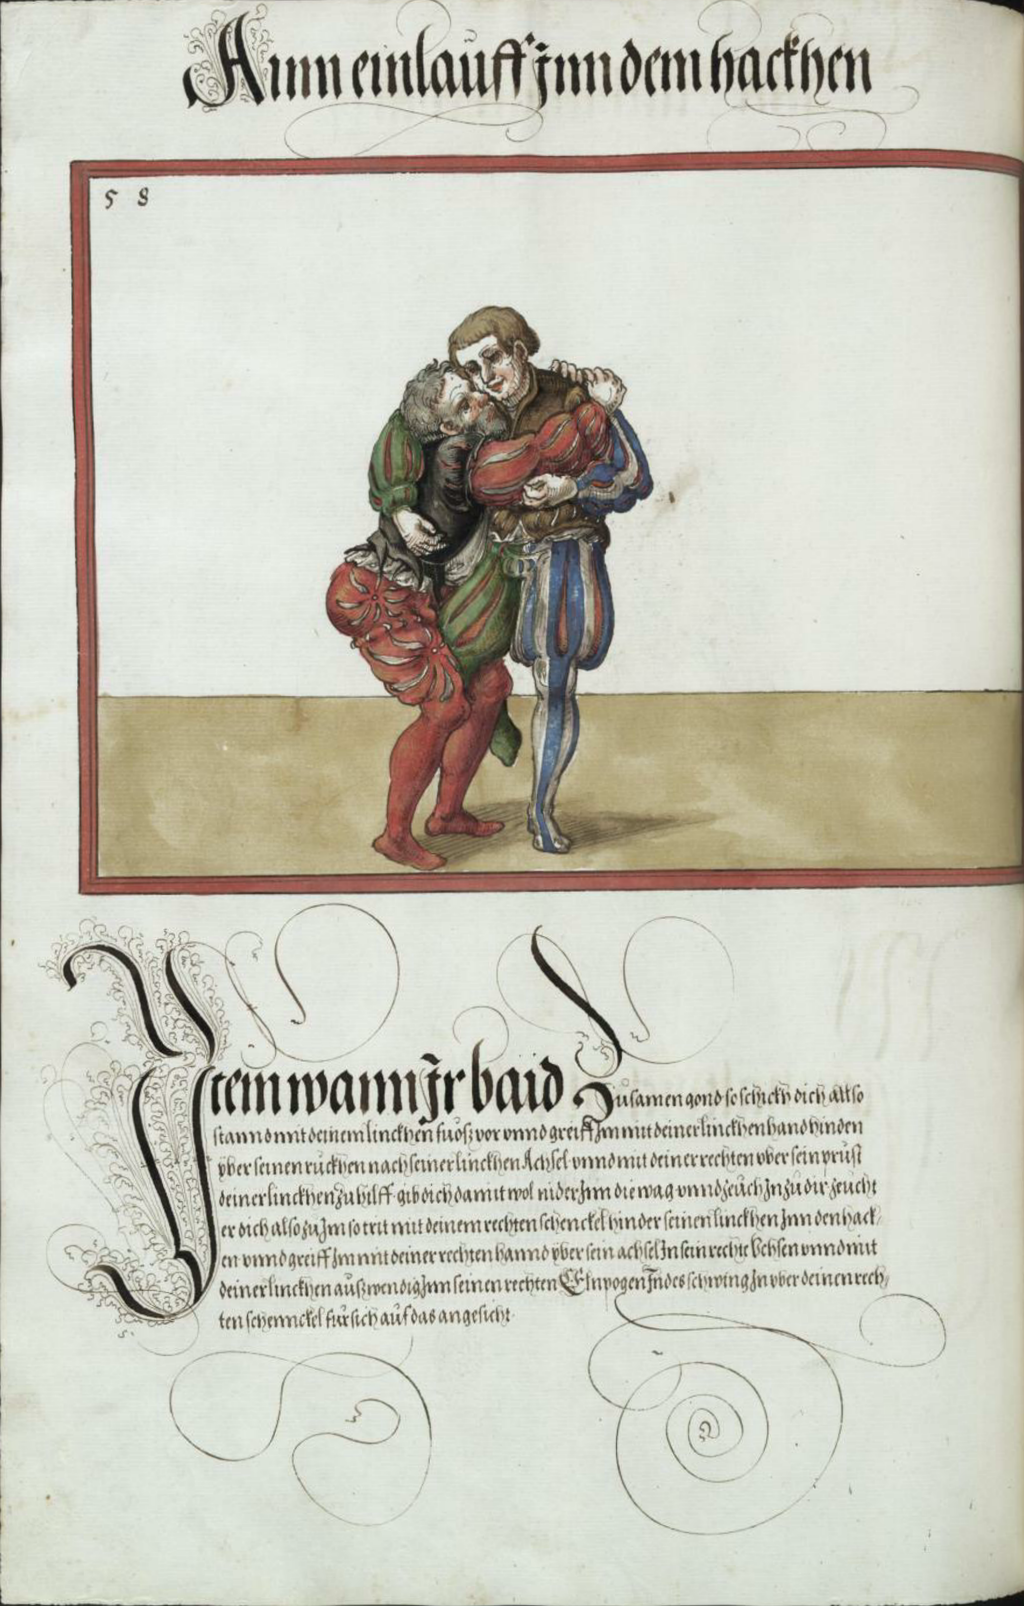 Ainn einlauff Jnn dem hackhen
5 8
Jtem wann Jr baid Zusamen gond so schickh dich allso
stannd mit deinem linckhen fuosz vor vnnd greiff Jm mit deiner linckhen hand hinden
yber seinen ruckhen nach seiner linckhen Achsel vnnd mit deiner rechten vber sein prust
deiner linckhen zu hilff gib dich damit wol nider Jnn die wag vnnd zeuch Jn zu dir zeucht
er dich also zu Jm so trit mit deinem rechten schenckel hinder seinen linckhen Jnn den hack/
en vnnd greiff Jm mit deiner rechten hannd yber sein achsel Jn sein rechte Vchsen vnnd mit
deiner linckhen auszwendig Jnn seinen rechten Elnpogen Jndes schwing Jn vber deinen rech/
ten schennckel für sich auf das angesicht